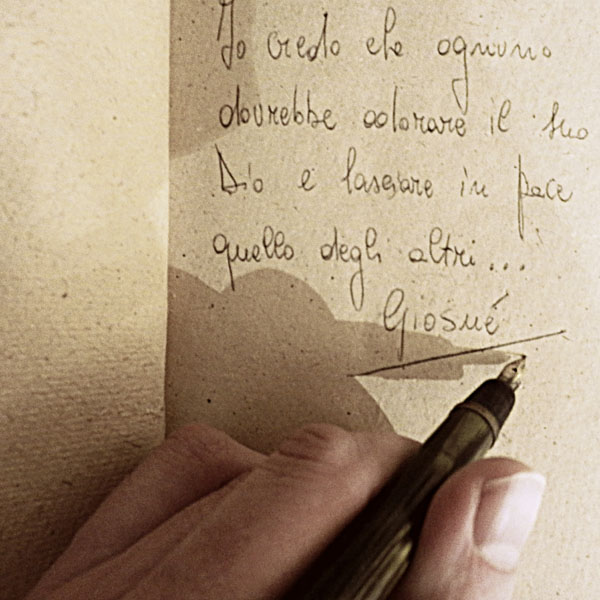 Io credo che ognuno
dovrebbe adorare il suo
Dio e lasciare in pace
quello degli altri...
Giosuè